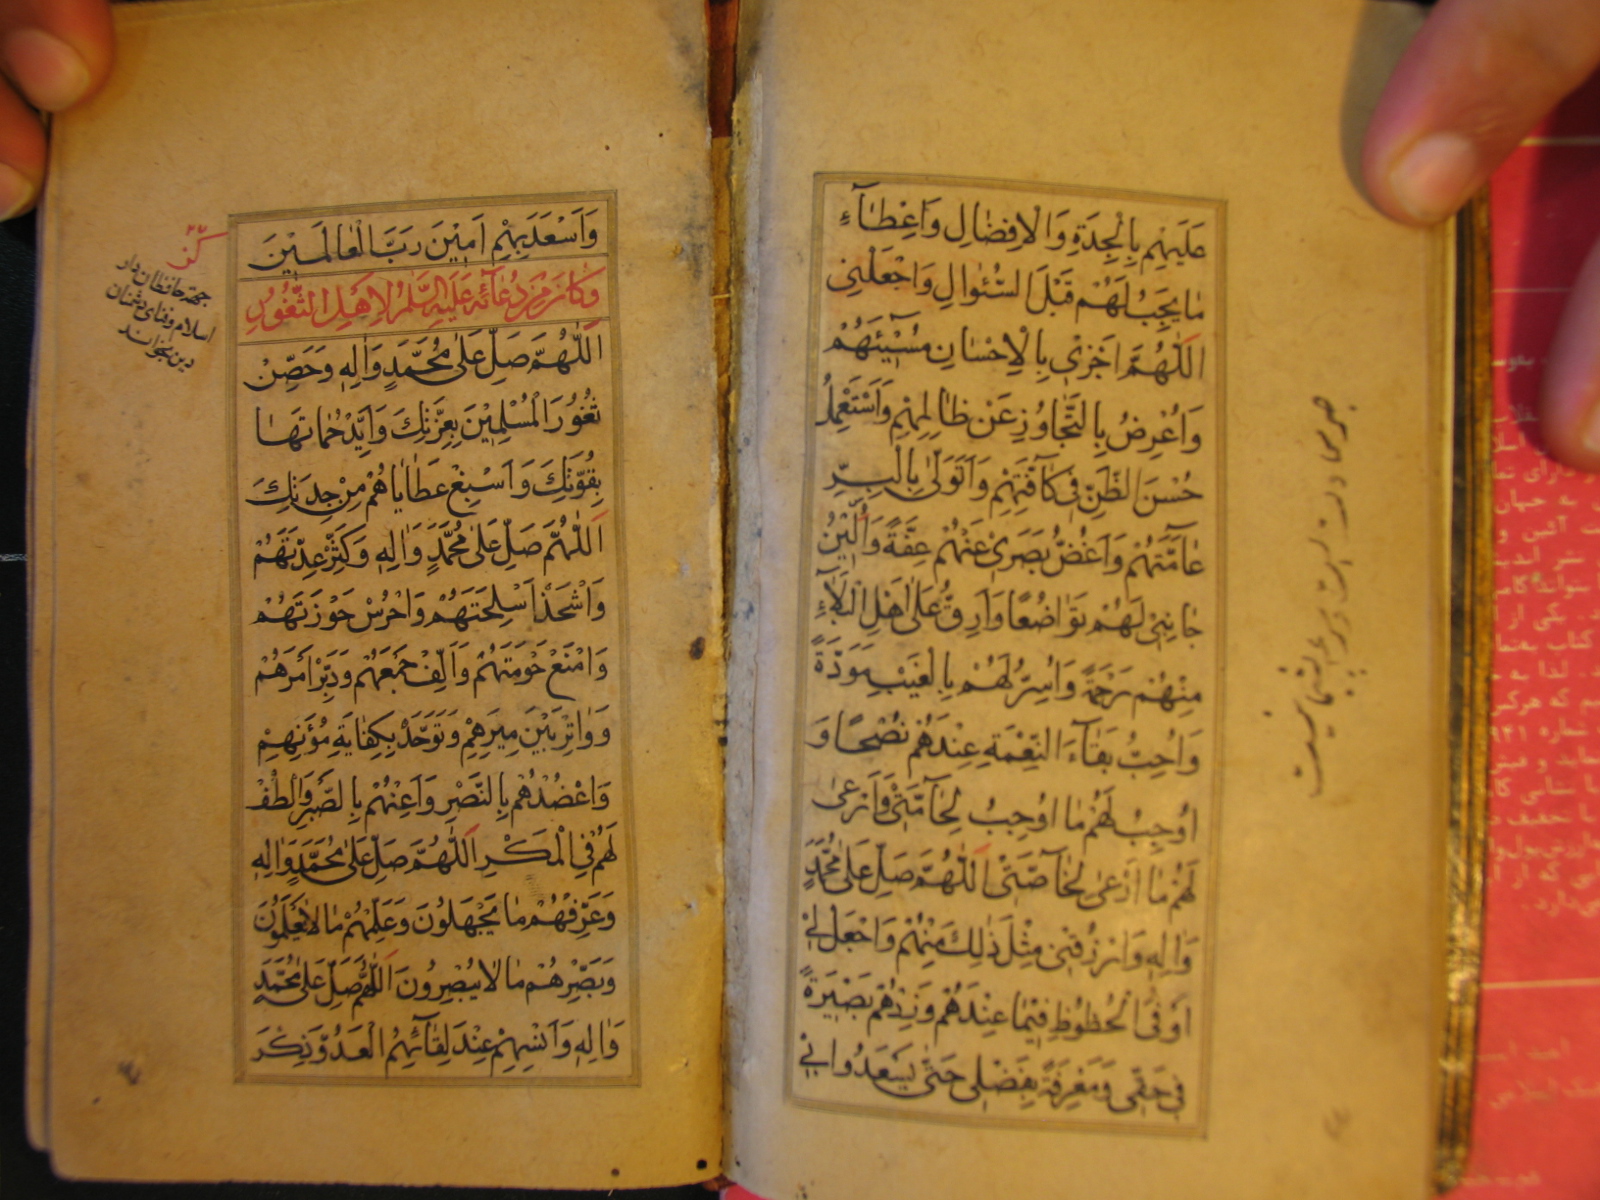 عَلَيْهِمْ بِالْجِدَةِ وَالْاِفْضٰالِ وَاِعْطٰآءِ
مٰا يَجِبُ لَهُمْ قَبْلَ السُّئُوالِ وَاجْعَلْنِى
اَللّٰهُمَّ اَجْزِىْ بِالْاِحْسٰانِ مُسٓيْئَهُمْ
وَاُعْرِضُ بِالتَّجٰاوُزِ عَنْ ظٰالِمِهِمْ وَاَسْتَعْمِلُ
حُسْنَ الظَّنِّ فِى كٰآفَّتِهِمْ وَاَتَوَلّٰى بِالْبِرِّ
عٰآمَّتَهُمْ وَاَغُضُّ بَصَرِىْ عَنْهُمْ عِفَّةً وَاُلَيِّنُ
جٰانِبِىْ لَهُمْ تَوٰاضُعًا وَاَرِقُّ عَلٰى اَهْلِ الْبَلٰآءِ
مِنْهُمْ رَحْمَةً وَاُسِرُّ لَهُمْ بِالْغَيْبِ مَوَدَّةً
وَاُحِبُّ بَقٰآءَ النِّعْمَةِ عِنْدَهُمْ نُصْحًا وَ
اُوْجِبُ لَهُمْ مٰا اُوْجِبُ لِحٰآمَّتِىْ وَاَرْعٰى
لَهُمْ مٰا اَرْعٰى لِخٰآصَّتِىْ اَللّٰهُمَّ صَلِّ عَلٰى مُحَمَّدٍ
وَاٰلِهٖ وَارْزُقْنِى مِثْلَ ذٰلِكَ مِنْهُمْ وَاجْعَلْ لِىْ
اَوْفَى الْحُظُوْظِ فِيْمٰا عِنْدَهُمْ وَزِدْهُمْ بَصِيْرَةً
فِى حَقِّى وَمَعْرِفَةً بِفَضْلِى حَتّٰى يَسْعَدُوا بِىْ
وَاَسْعَدَ بِهِمْ اٰمِيْنَ رَبَّ الْعٰالَمِيْنَ
وَكٰانَ مِنْ دُعٰآئِهِ عَلَيْهِ السَّلٰمُ لِاَهْلِ الثُّغُوْرِ
اَللّٰهُمَّ صَلِّ عَلٰى مُحَمَّدٍ وَاٰلِهٖ وَحَصِّنْ
ثُغُوْرَ الْمُسْلِمِيْنَ بِعِزَّتِكَ وَاَيِّدْ حُمٰاتَهٰا
بِقُوَّتِكَ وَاَسْبِغْ عَطٰايٰاهُمْ مِنْ جِدَتِكَ
اَللّٰهُمَّ صَلِّ عَلٰى مُحَمَّدٍ وَاٰلِهٖ وَكَثِّرْ عِدَّتَهُمْ
وَاشْحَذْ اَسْلِحَتَهُمْ وَاحْرُسْ حَوْزَتَهُمْ
وَامْنَعْ حَوْمَتَهُمْ وَاَلِّفْ جَمْعَهُمْ وَدَبِّرْ اَمْرَهُمْ
وَوٰاتِرْ بَيْنَ مِيَرِهِمْ وَتَوَحَّدْ بِكِفٰايَةِ مُؤَنِهِمْ
وَاعْضُدْهُمْ بِالنَّصْرِ وَاَعِنْهُمْ بِالصَّبْرِ وَالْطُفْ
لَهُمْ فِى الْمَكْرِ اَللّٰهُمَّ صَلِّ عَلٰى مُحَمَّدٍ وَاٰلِهٖ
وَعَرِّفْهُمْ مٰا يَجْهَلُوْنَ وَعَلِّمْهُمْ مٰا لٰا يَعْلَمُوْنَ
وَبَصِّرْهُمْ مٰا لٰا يُبْصِرُوْنَ اَللّٰهُمَّ صَلِّ عَلٰى مُحَمَّدٍ
وَاٰلِهٖ وَاَنْسِهِمْ عِنْدَ لِقٰآئِهِمُ الْعَدُوَّ ذِكْرَ
جهة حافظان دار
اسلام و فناى دشمنان
دين بخوانند